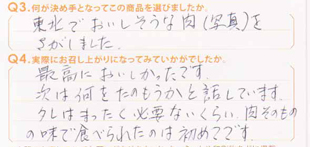 Q3.何が決め手となってこの商品を選びましたか。
東北でおいしそうな肉(写真)を
さがしました。
Q4.実際にお召し上がりになってみていかがでしたか。
最高においしかったです。
次は何をたのもうかと話しています。
タレはまったく必要ないくらい。肉そのもの
の味で食べられたのは初めてです。